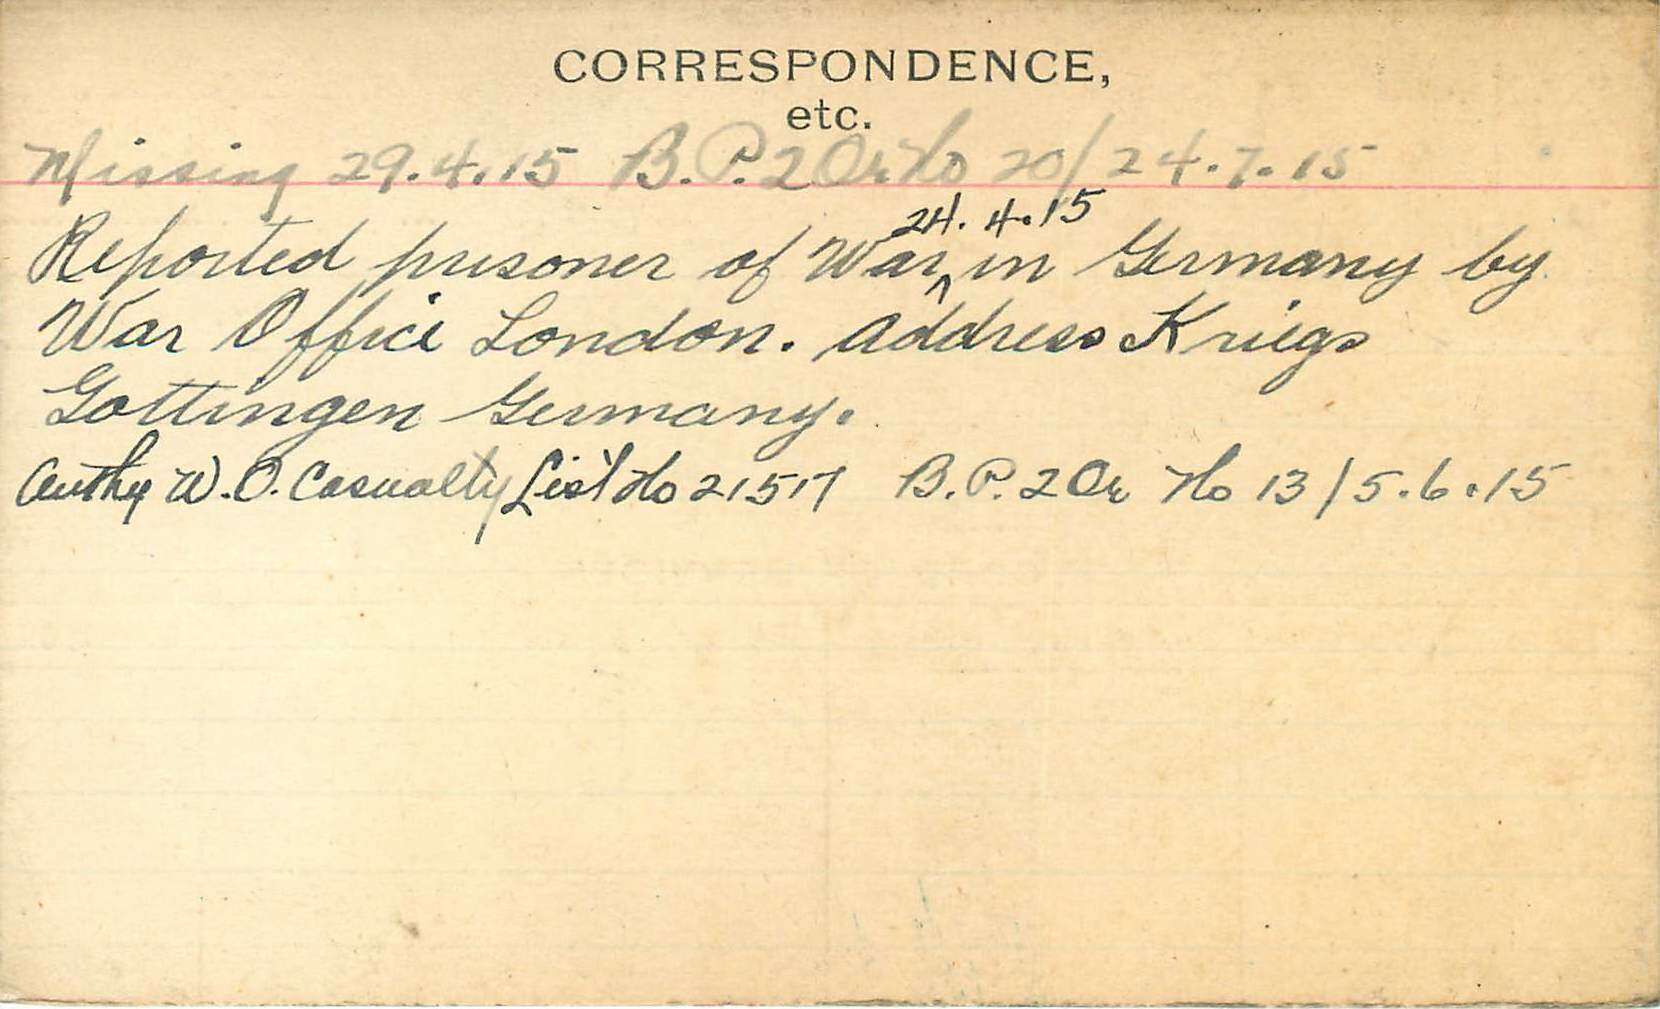 CORRESPONDENCE,
etc.
Missing 29.4.15 B.P.2 Or No 20/24.7.15
24.4.15
Reported prisoner of War ^ in Germany by
War Office London. Address Kriegs
Gottingen Germany.
Authy W.O. Casualty List No 2157 B.P.2 Or No 13/5.6.15